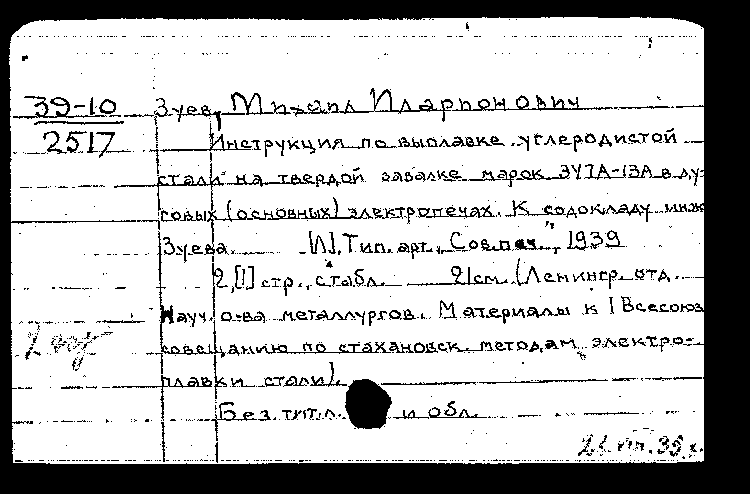 39-10
2517
Зуев, Михаил Иларионович
Инструкция по выплавке углеродистой
стали на твердой завалке марок ЭУ7А-13А в ду-
говых (основных) электропечах. К содокладу инж
Зуева. [Л], Тип. арт. "Сов. печ.", 1939
2, [1] стр., с табл. 21 см. (Ленингр. отд.
Науч. о-ва металлургов. Материалы к I Всесоюз
совещанию по стахановск. методам электро-
плавки стали).
Без тит. л. и обл.
2 экз